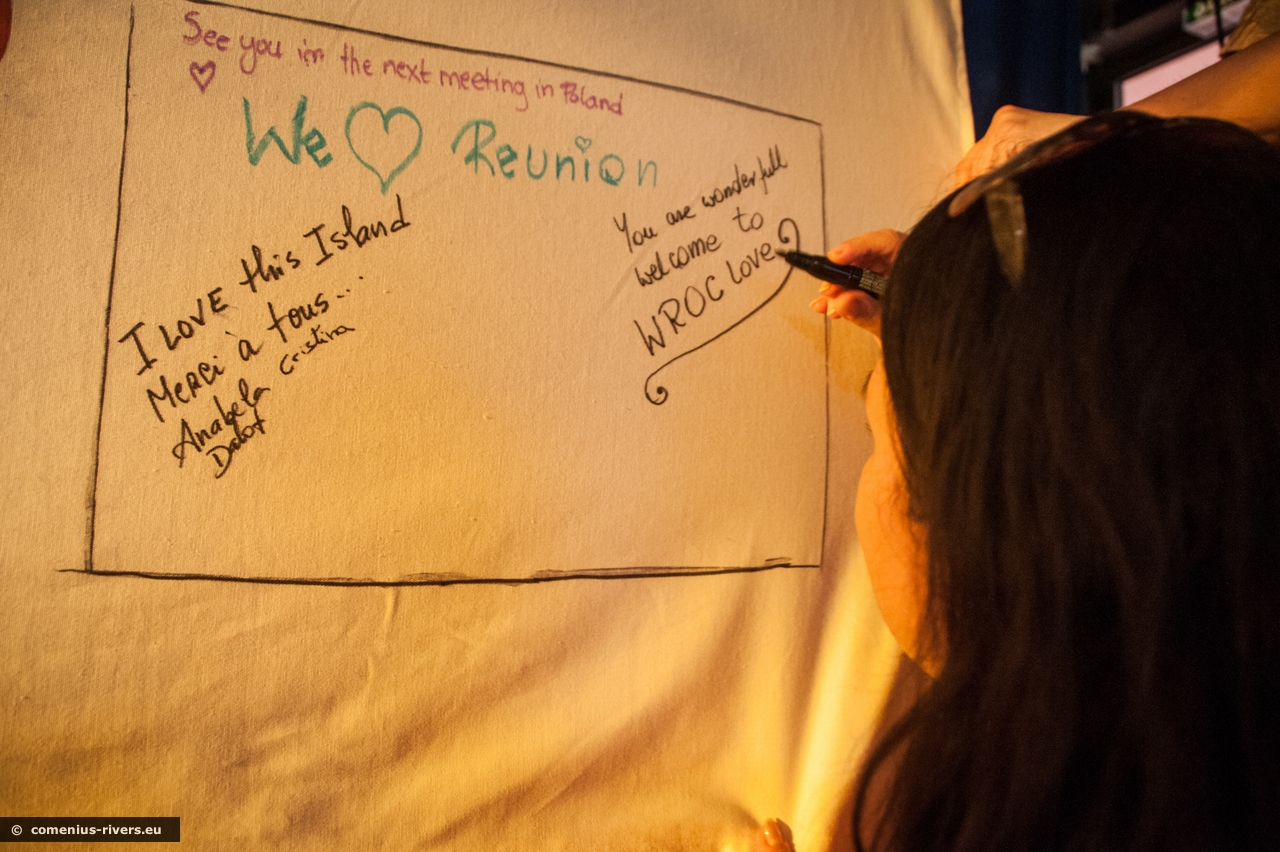 See you in the next meeting in Poland
We ♡ Reunion
I LOVE this Island
Merci à tous...
Anabela Cristina
You are wonderfull
welcome to
WROC Love
© comenius-rivers.eu